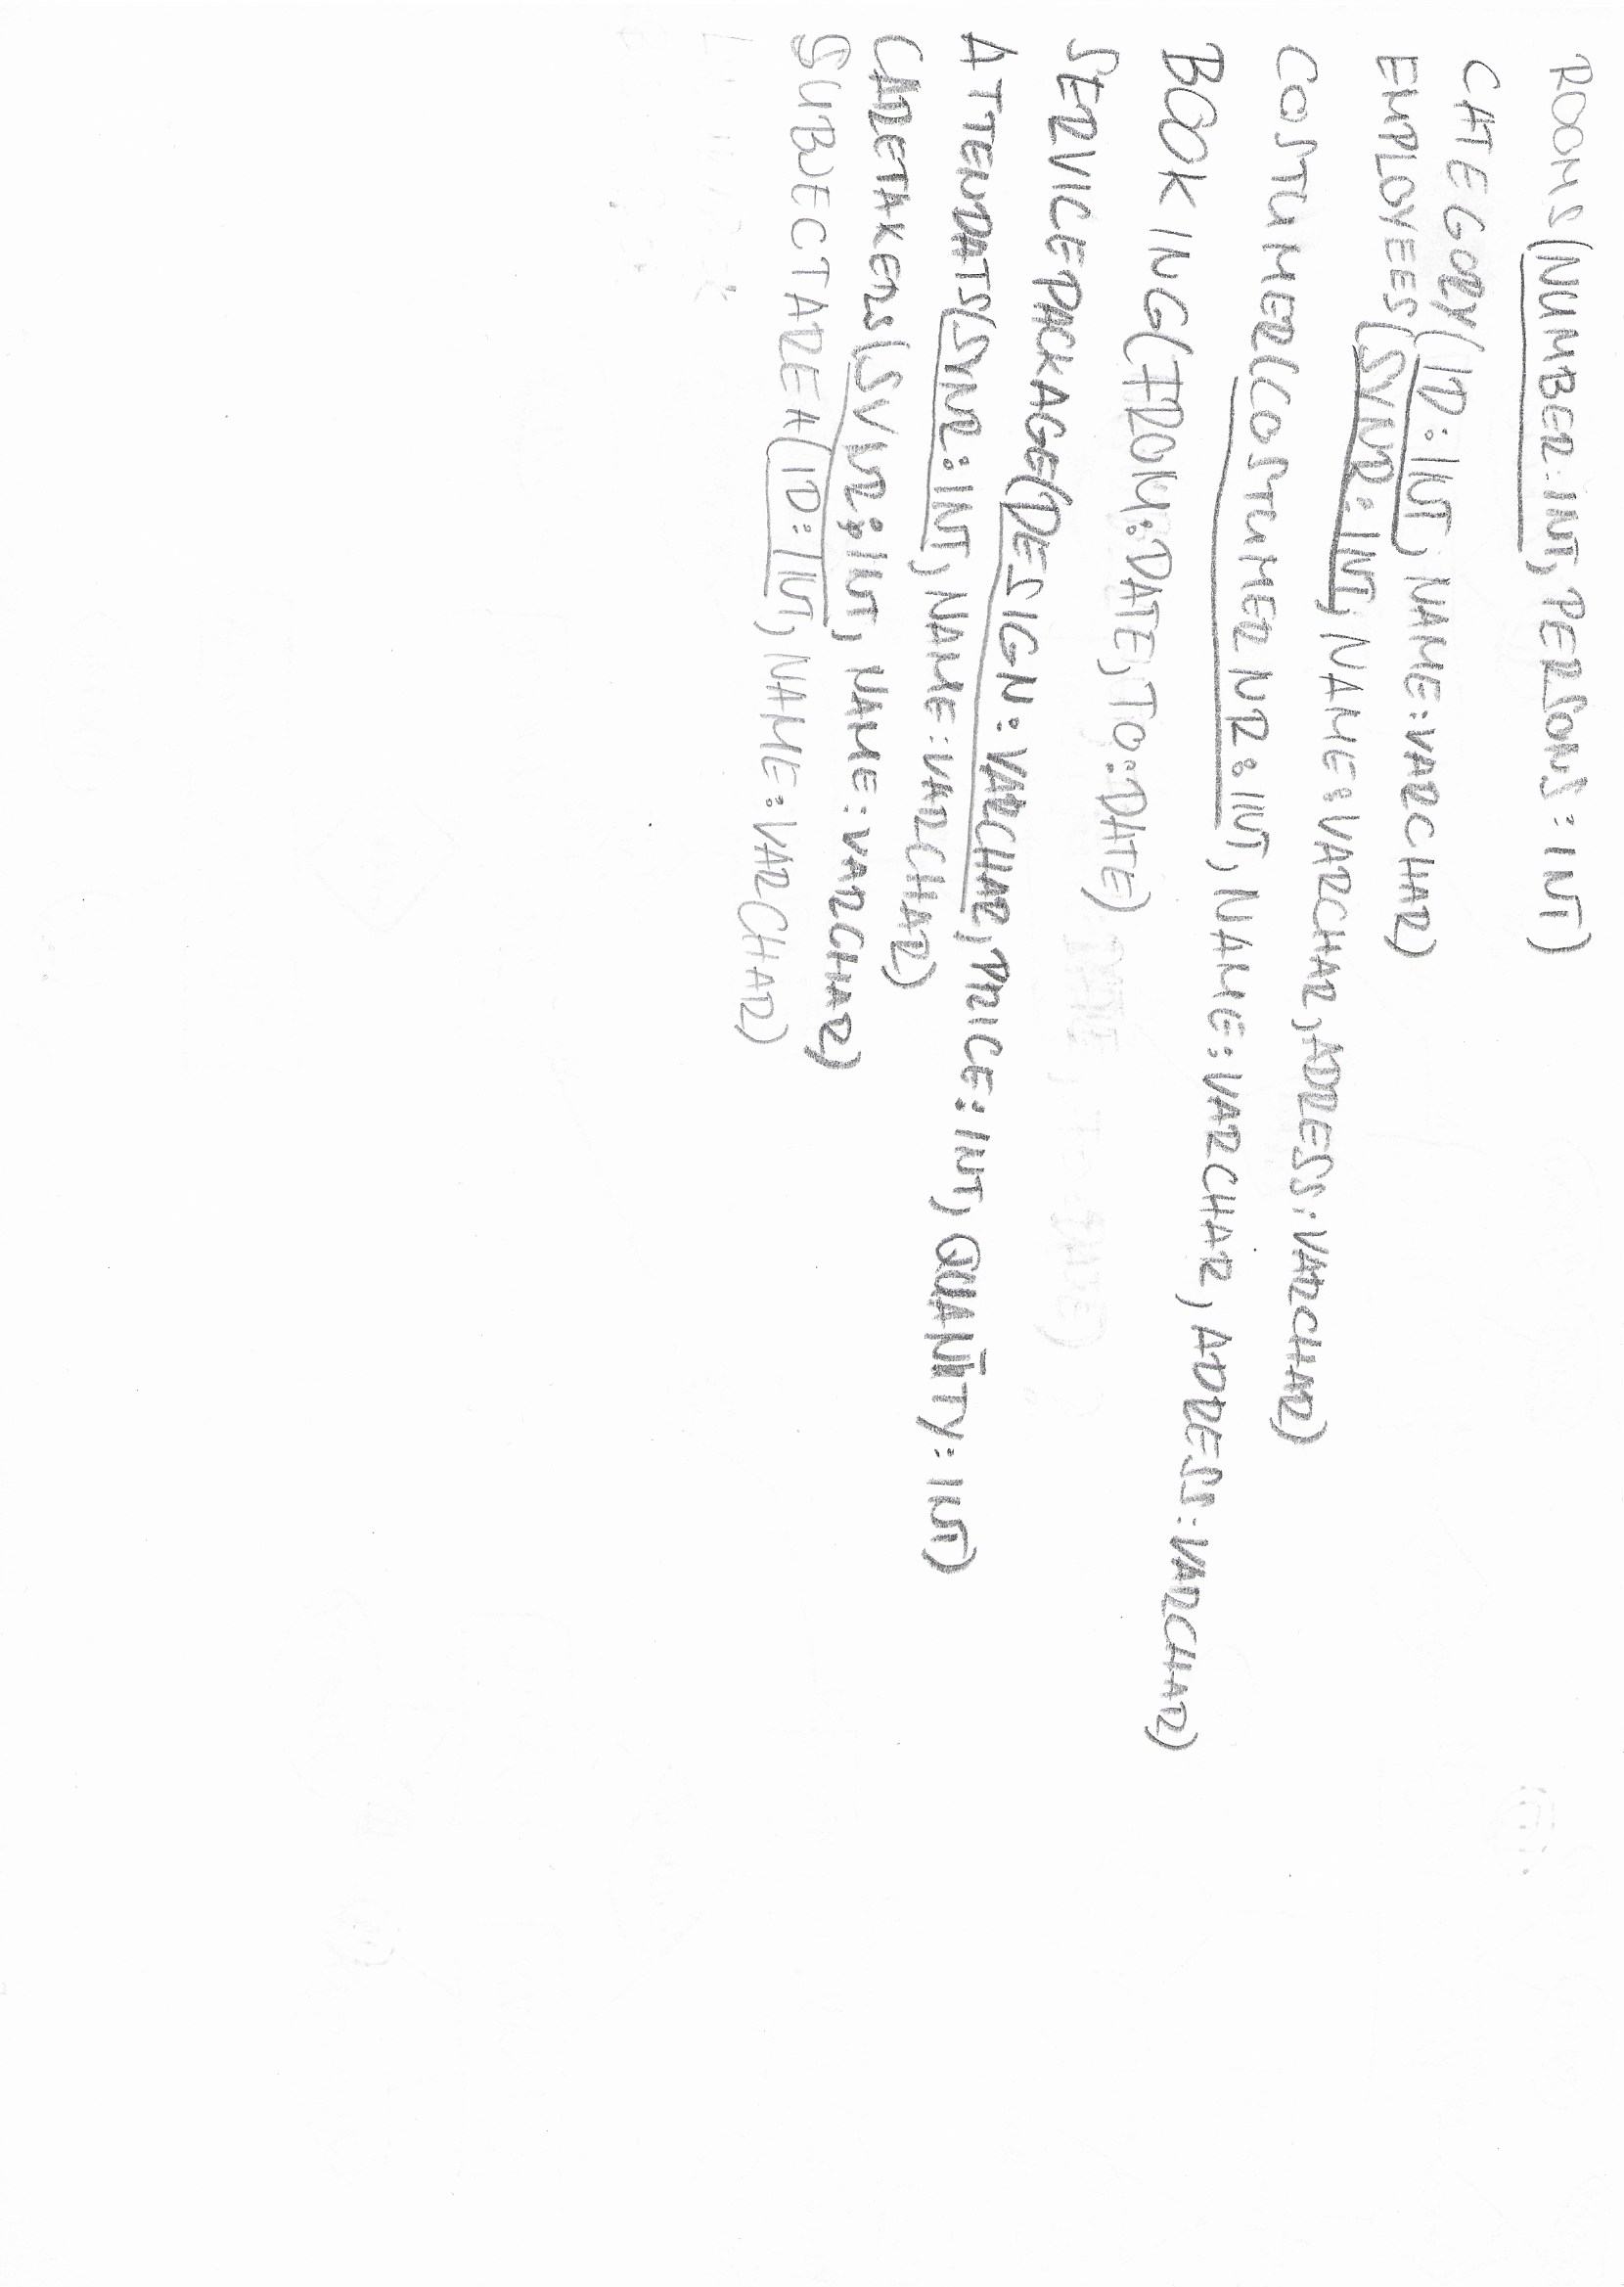 ROOMS(NUMBER:INT, PERSONS:INT)
CATEGORY(ID:INT, NAME:VARCHAR)
EMPLOYEES(SVNR:INT, NAME:VARCHAR, ADRESS:VARCHAR)
COSTUMER(COSTUMERNR:INT, NAME:VARCHAR, ADDRESS:VARCHAR)
BOOKING(FROM:DATE, TO:DATE)
SERVICEPACKAGE(DESIGN:VARCHAR, PRICE:INT, QUANTITY:INT)
ATTENDATS(SVNR:INT, NAME:VARCHAR)
CARETAKERS(SVNR:INT, NAME:VARCHAR)
SUBJECTAREA(ID:INT, NAME:VARCHAR)